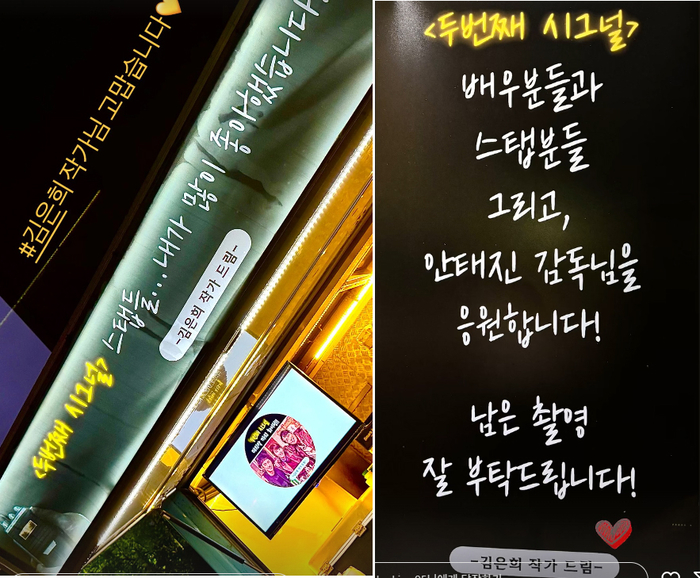 #김은희 작가님 고맙습니다
<두번째 시그널> 스탭들... 내가 많이 좋아했습니다!
-김은희 작가 드림-
<두번째 시그널>
배우분들과
스탭분들
그리고,
안태진 감독님을
응원합니다!
남은 촬영
잘 부탁드립니다!
-김은희 작가 드림-